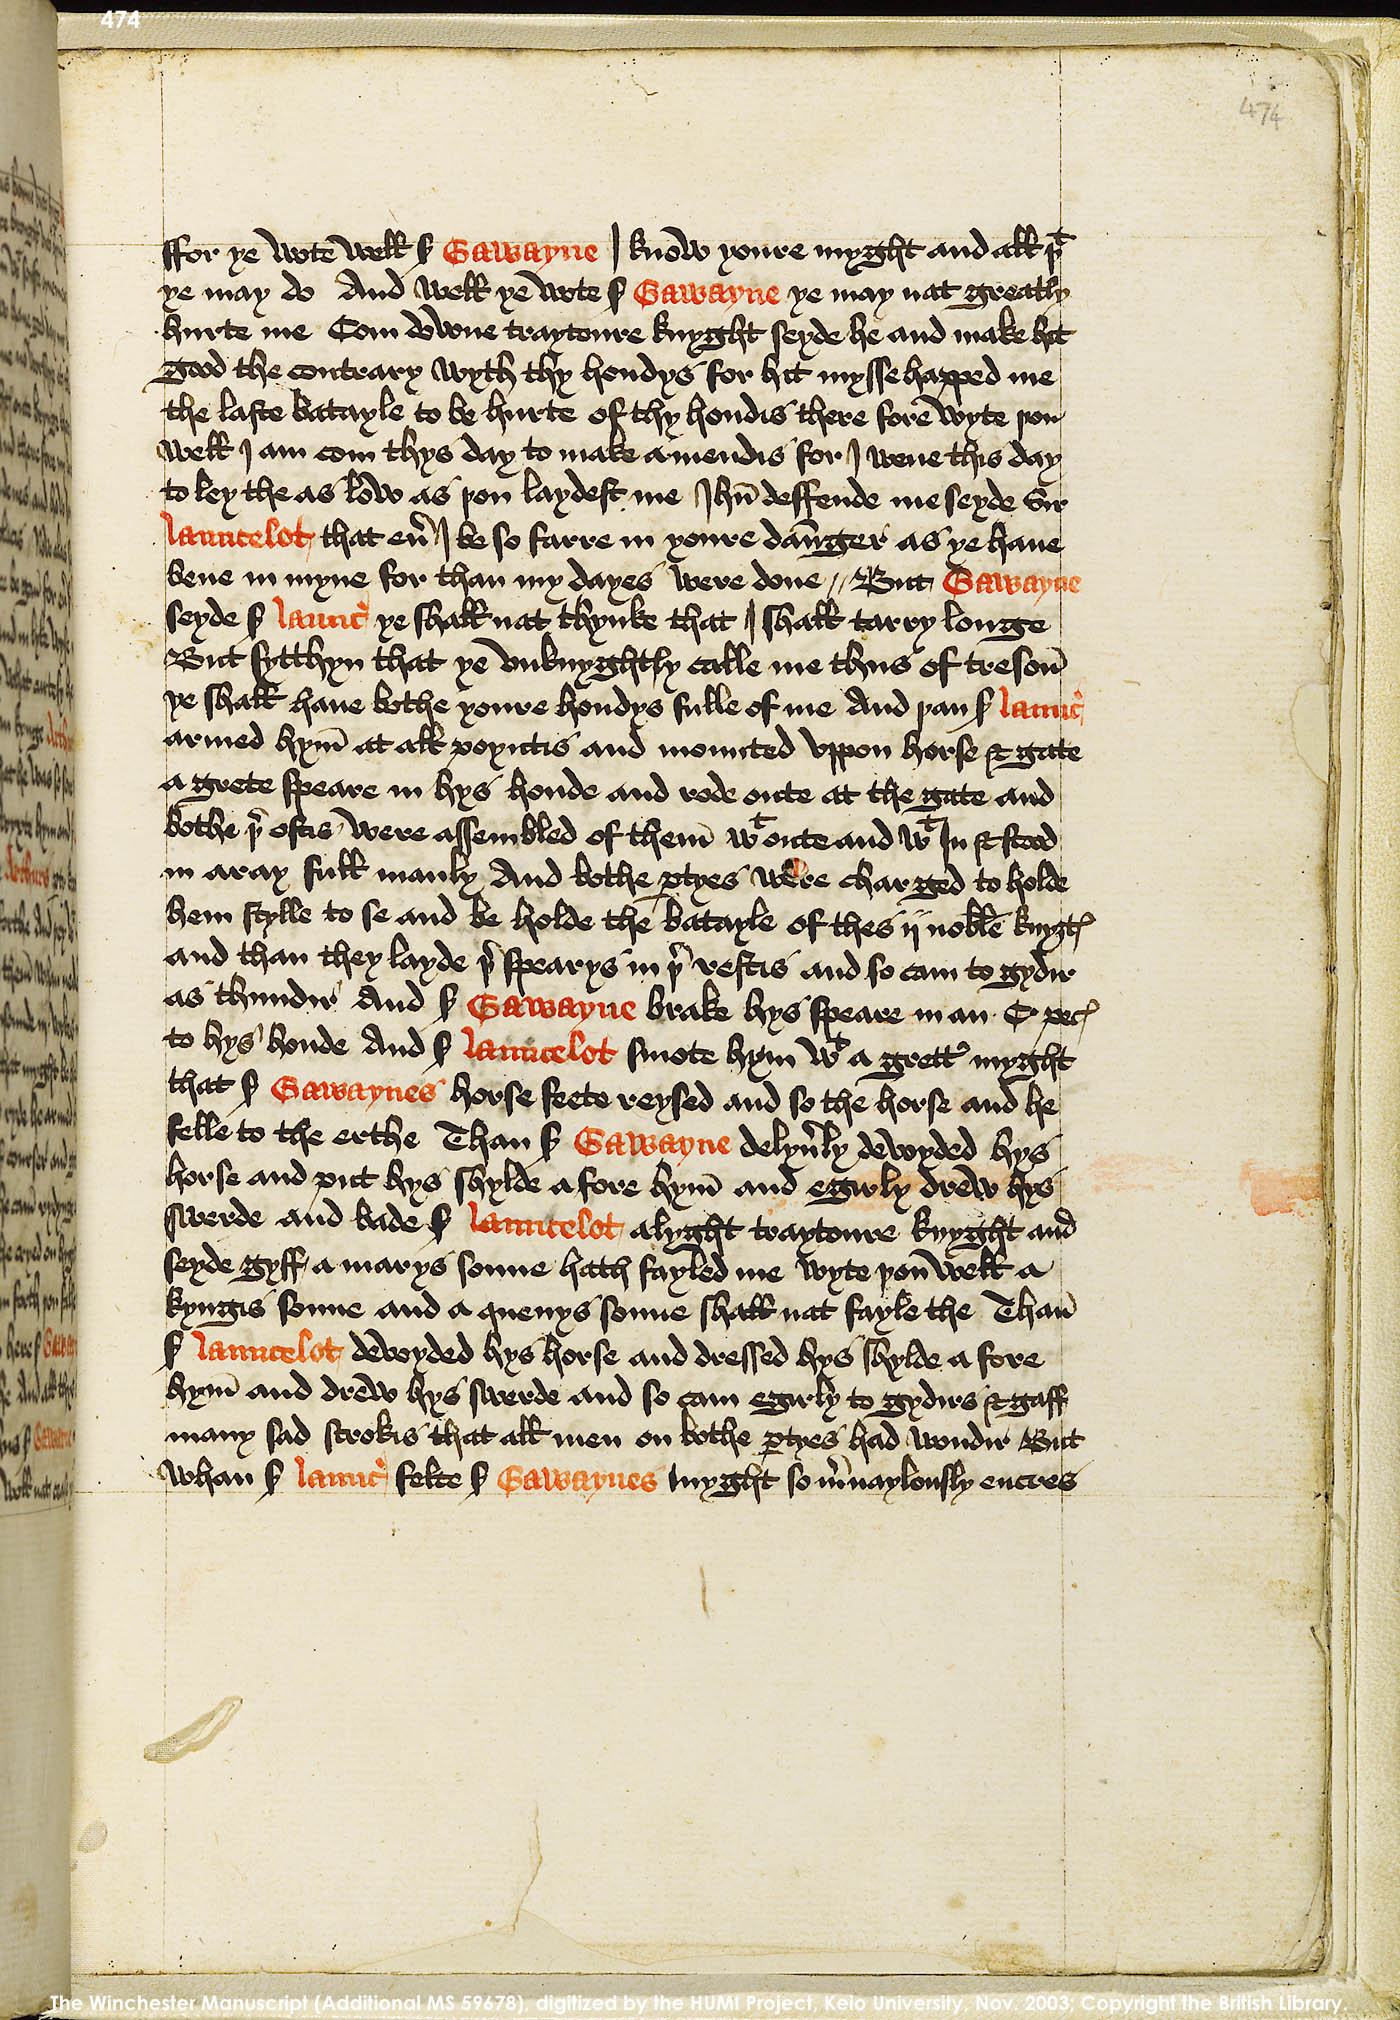 474
474
ffor ye wote well ẜ Gawayne I know youre myght and all þᵗ
ye may do And well ye wote ẜ Gawayne ye may nat greatly
hurte me Com downe traytoure knyght seyde he and make hit
good the contrary wyth thy hondys for hit mysse happed me
the laste batayle to be hurte of thy hondis there fore wyte þou
well I am com thys day to make amendis for I wene this day
to ley the as low as þou laydest me Ihū deffende me seyde Sir
Launcelot that eu̾ I be so farre in youre daūnger as ye haue
bene in myne for than my dayes were done // But Gawayne
seyde ẜ Launc̾ ye shall nat thynke that I shall tarry longe
But sytthyn that ye vnknyghtly calle me thus of tresoū
ye shall haue bothe youre hondys fulle of me And þan ẜ Launc̾
armed hym̄ at all poyntis and mounted vppon horse & gate
a grete speare in hys honde and rode oute at the gate and
bothe þ̾ ostis were assembled of them̄ wᵗ oute and wᵗ In & stood
in aray full manly And bothe ꝑtyes were charged to holde
hem stylle to se and be holde the batayle of thes ij noble knygtꝭ
and than they layde þ̾ spearys in þ̾ restis and so cam to gydir
as thundir And ẜ Gawayne brake hys speare in an · C · pecꝭ
to hys honde And ẜ Launcelot smote hym wᵗ a grett̾ myght
that ẜ Gawaynes horse feete reysed and so the horse and he
felle to the erthe Than ẜ Gawayne delyu̾ly devoyded hys
horse and put hys shylde a fore hym̄ and egirly drew hys
swerde and bade ẜ Launcelot alyght traytoure knyght and
seyde gyff a marys sonne hath fayled me wyte þou well a
kyngis sonne and a quenys sonne shall nat fayle the Thaū
ẜ Launcelot devoyded hys horse and dressed hys shylde a fore
hym̄ and drew hys swerde and so cam egirly to gydirs & gaff
many sad strokis that all men on bothe ꝑtyes had wondir But
whan ẜ Launc̾ felte ẜ Gawaynes myght so m̾uaylously encres
The Winchester Manuscript (Additional MS 59678), digitized by the HUMI Project, Keio University, Nov. 2003; Copyright the British Library.